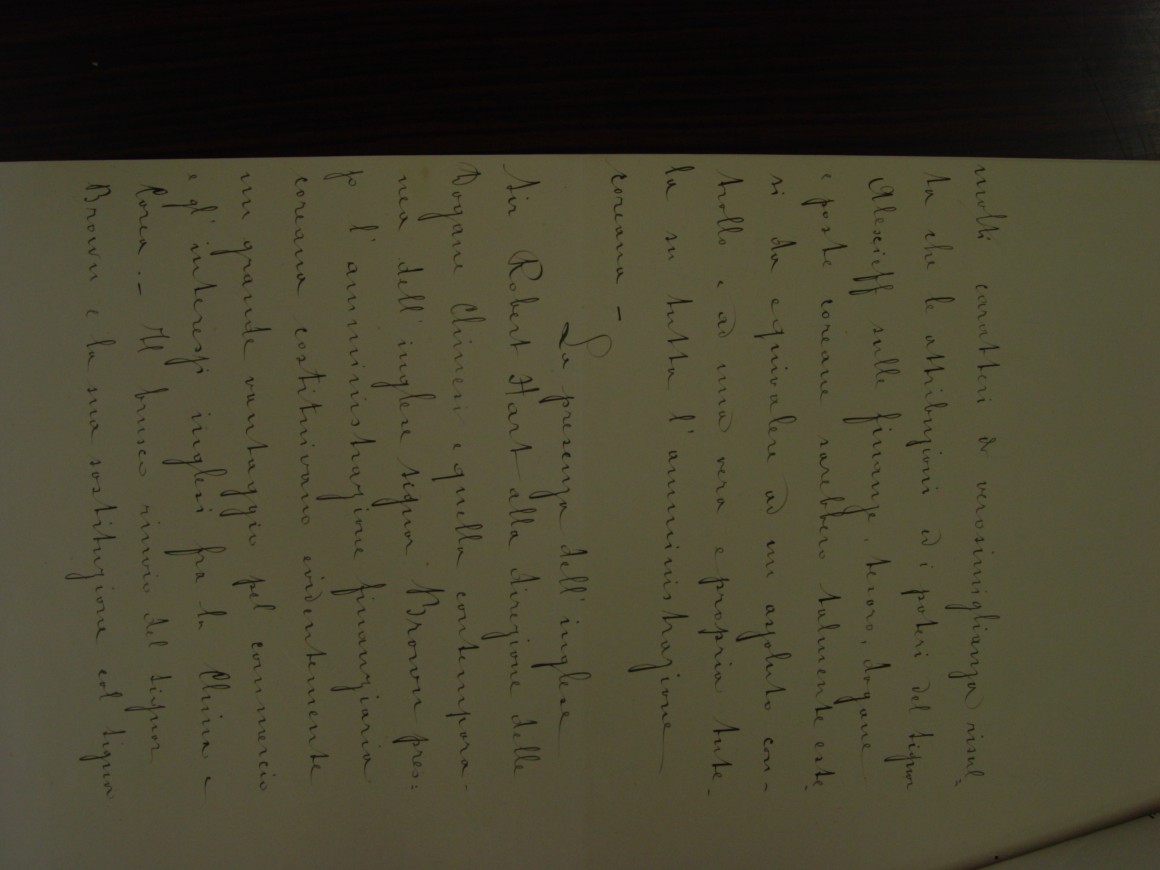 molti caratteri di verosimiglianza risul=
ta che le attribuzioni ed i poteri del signor
Alexieff sulle finanze, tesoro, dogane
e poste coreane sarebbero talmente este
si da equivalere ad un assoluto con-
trollo e ad una vera e propria tute-
la su tutta l'amministrazione
coreana -
La presenza dell'inglese
Sir Robert Hart alla direzione delle
Dogane Chinesi e quella contempora-
nea dell'inglese signor Brown pres:
so l'amministrazione finanziaria
coreana costituivano evidentemente
un grande vantaggio pel commercio
e gl'interessi inglesi fra la China e
Corea. - Il brusco rinvio del signor
Brown e la sua sostituzione col signor